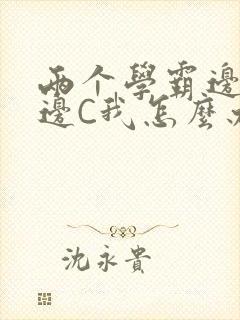 两个學霸邊
邊C我怎麼
沈永貴